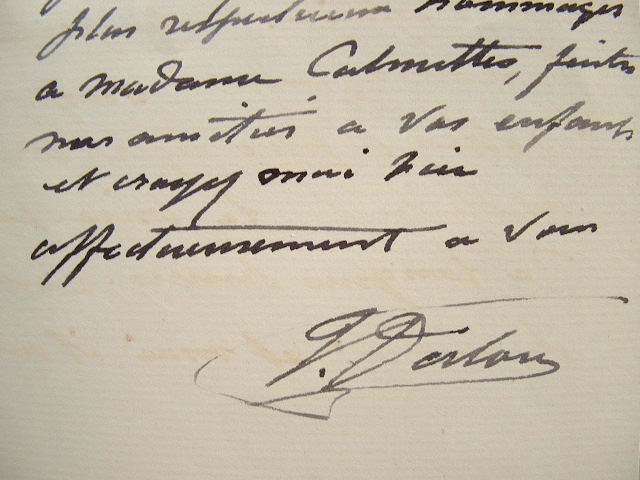 plus respectueux hommages
a madame Calmettes, faites
mes amitiés a vos enfants
et croyez moi bien
affectueusement a vous